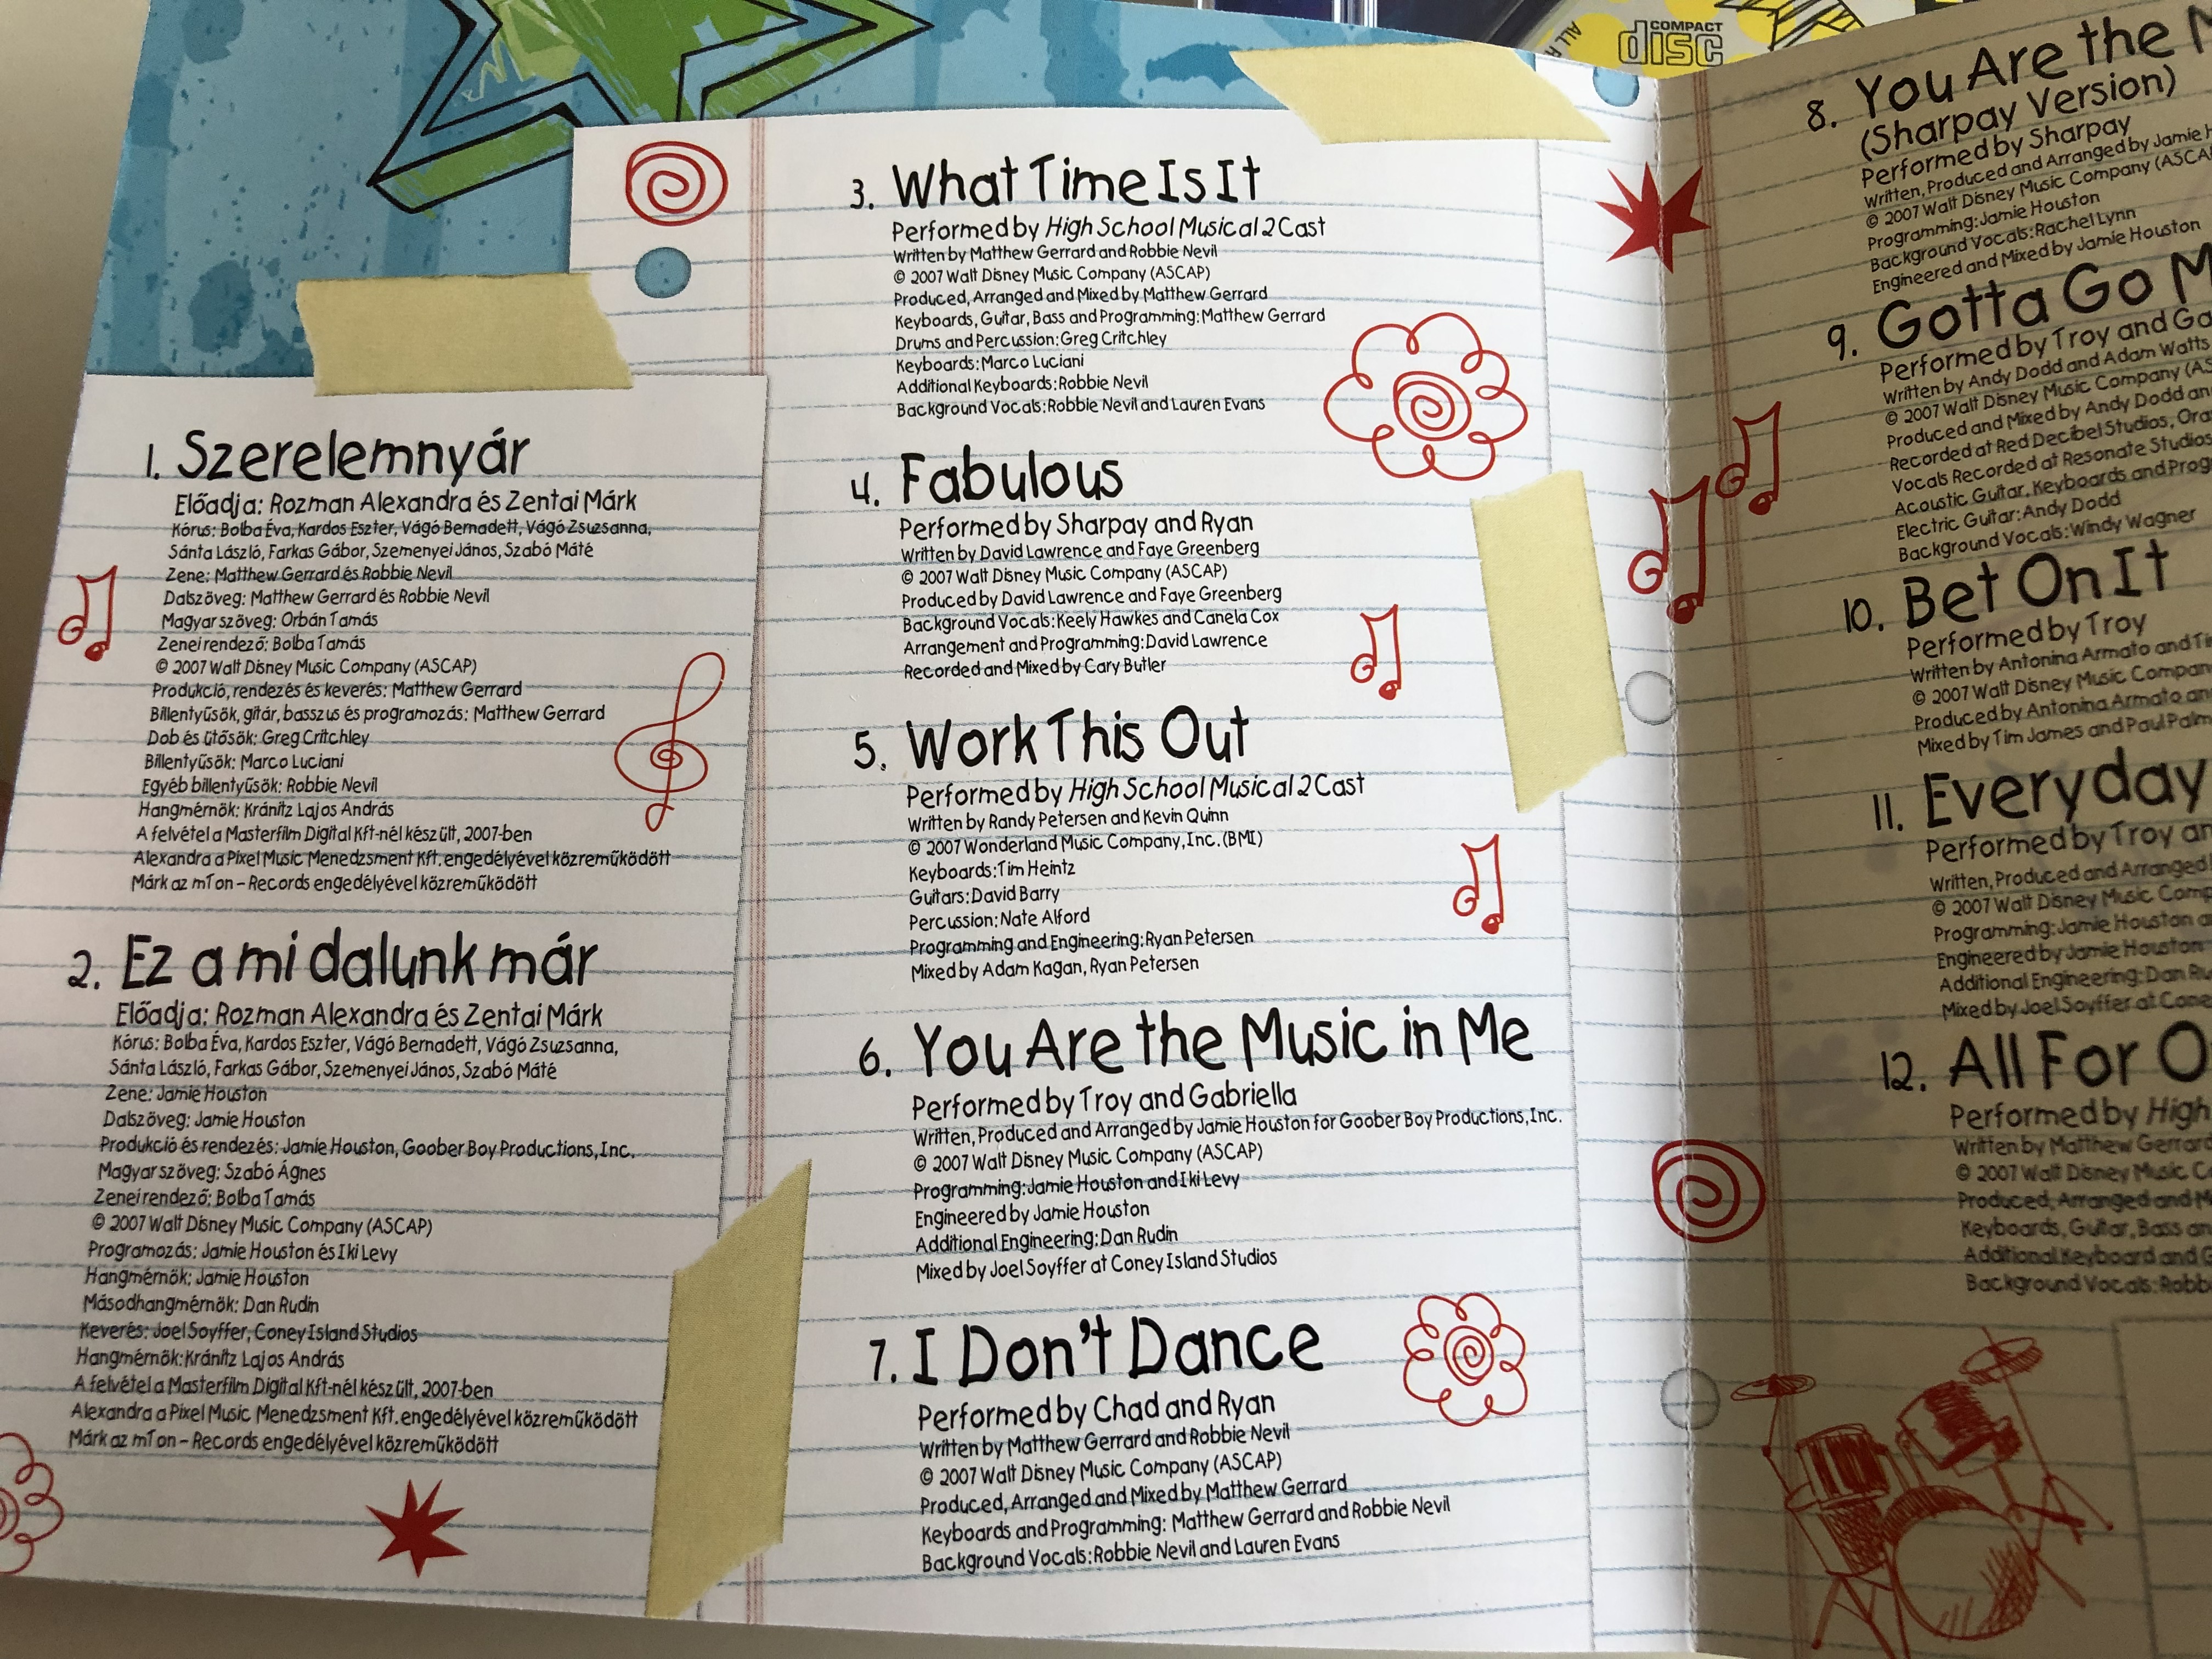 1. Szerelemnyár
Előadja: Rozman Alexandra és Zentai Márk
Kórus: Bolba Éva, Kardos Eszter, Vágó Bernadett, Vágó Zsuzsanna,
Sánta László, Farkas Gábor, Szemenyei János, Szabó Máté
Zene: Matthew Gerrard és Robbie Nevil
Dalszöveg: Matthew Gerrard és Robbie Nevil
Magyar szöveg: Orbán Tamás
Zenei rendező: Bolba Tamás
© 2007 Walt Disney Music Company (ASCAP)
Produkció, rendezés és keverés: Matthew Gerrard
Billentyűsök, gitár, basszus és programozás: Matthew Gerrard
Dob és ütősök: Greg Critchley
Billentyűsök: Marco Luciani
Egyéb billentyűsök: Robbie Nevil
Hangmérnök: Kránitz Lajos András
A felvétel a Masterfilm Digital Kft-nél készült, 2007-ben
Alexandra a Pixel Music Menedzsment Kft. engedélyével közreműködött
Márk az mTon – Records engedélyével közreműködött
2. Ez a mi dalunk már
Előadja: Rozman Alexandra és Zentai Márk
Kórus: Bolba Éva, Kardos Eszter, Vágó Bernadett, Vágó Zsuzsanna,
Sánta László, Farkas Gábor, Szemenyei János, Szabó Máté
Zene: Jamie Houston
Dalszöveg: Jamie Houston
Produkció és rendezés: Jamie Houston, Goober Boy Productions, Inc.
Magyar szöveg: Szabó Ágnes
Zenei rendező: Bolba Tamás
© 2007 Walt Disney Music Company (ASCAP)
Programozás: Jamie Houston és Iki Levy
Hangmérnök: Jamie Houston
Másodhangmérnök: Dan Rudin
Keverés: Joel Soyffer, Coney Island Studios
Hangmérnök: Kránitz Lajos András
A felvétel a Masterfilm Digital Kft-nél készült, 2007-ben
Alexandra a Pixel Music Menedzsment Kft. engedélyével közreműködött
Márk az mTon – Records engedélyével közreműködött
3. What Time Is It
Performed by High School Musical 2 Cast
Written by Matthew Gerrard and Robbie Nevil
© 2007 Walt Disney Music Company (ASCAP)
Produced, Arranged and Mixed by Matthew Gerrard
Keyboards, Guitar, Bass and Programming: Matthew Gerrard
Drums and Percussion: Greg Critchley
Keyboards: Marco Luciani
Additional Keyboards: Robbie Nevil
Background Vocals: Robbie Nevil and Lauren Evans
4. Fabulous
Performed by Sharpay and Ryan
Written by David Lawrence and Faye Greenberg
© 2007 Walt Disney Music Company (ASCAP)
Produced by David Lawrence and Faye Greenberg
Background Vocals: Keely Hawkes and Canela Cox
Arrangement and Programming: David Lawrence
Recorded and Mixed by Cary Butler
5. Work This Out
Performed by High School Musical 2 Cast
Written by Randy Petersen and Kevin Quinn
© 2007 Wonderland Music Company, Inc. (BMI)
Keyboards: Tim Heintz
Guitars: David Barry
Percussion: Nate Alford
Programming and Engineering: Ryan Petersen
Mixed by Adam Kagan, Ryan Petersen
6. You Are the Music in Me
Performed by Troy and Gabriella
Written, Produced and Arranged by Jamie Houston for Goober Boy Productions, Inc.
© 2007 Walt Disney Music Company (ASCAP)
Programming: Jamie Houston and Iki Levy
Engineered by Jamie Houston
Additional Engineering: Dan Rudin
Mixed by Joel Soyffer at Coney Island Studios
7. I Don't Dance
Performed by Chad and Ryan
Written by Matthew Gerrard and Robbie Nevil
© 2007 Walt Disney Music Company (ASCAP)
Produced, Arranged and Mixed by Matthew Gerrard
Keyboards and Programming: Matthew Gerrard and Robbie Nevil
Background Vocals: Robbie Nevil and Lauren Evans
COMPACT
disc
ALL
8. You Are the
(Sharpay Version)
Performed by Sharpay
Written, Produced and Arranged by Jamie
© 2007 Walt Disney Music Company
Programming: Jamie Houston
Background Vocals: Rachel Lynn
Engineered and Mixed by Jamie Houston
9. Gotta Go
Performed by Troy and
Written by Andy Dodd and Adam Watts
© 2007 Walt Disney Music Company
Produced and Mixed by Andy Dodd
Recorded at Red Decibel Studios,
Vocals Recorded at Resonate Studios
Acoustic Guitar, Keyboards and
Electric Guitar: Andy Dodd
Background Vocals: Windy Wagner
10. Bet On It
Performed by Troy
Written by Antonina Armato and
© 2007 Walt Disney Music
Produced by Antonina Armato
Mixed by Tim James and Paul
11. Everyday
Performed by Troy
Written, Produced and Arranged
© 2007 Walt Disney Music
Programming: Jamie Houston
Engineered by Jamie Houston
Additional Engineering: Dan
Mixed by Joel Soyffer at
12. All For
Performed by High
Written by Matthew
© 2007 Walt Disney Music
Produced, Arranged and
Keyboards, Guitar, Bass
Additional Keyboard and
Background Vocals: